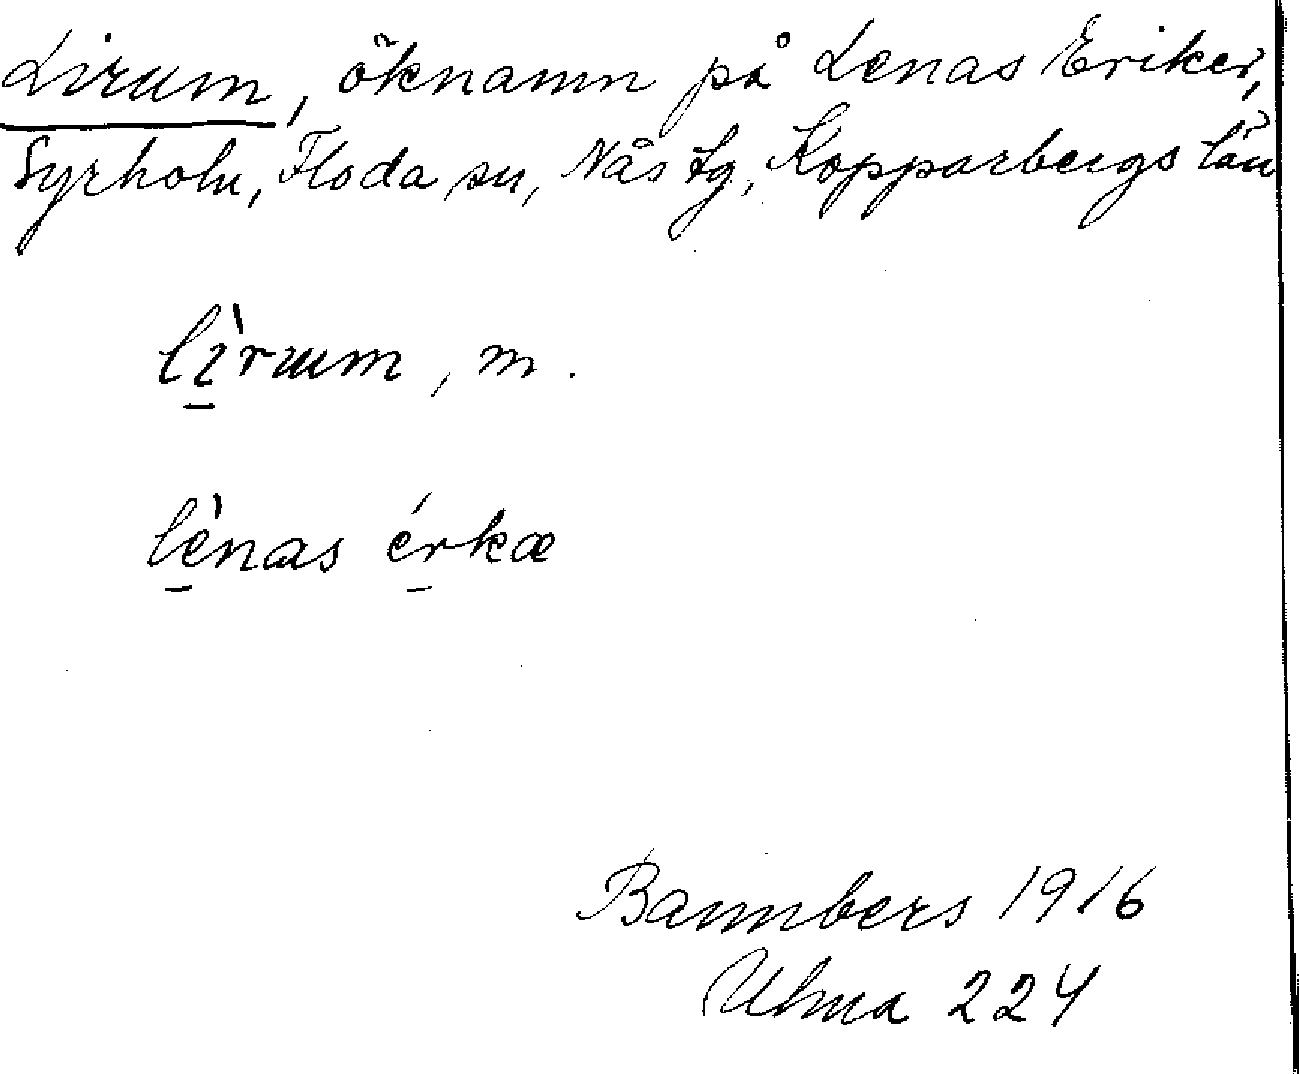 Lirum, öknamn på Lenas Eriker,
Syrholn, Floda sn, Nås tg, Kopparbergs län
lì̱rɯm, m.
lè̱nas é̱rkæ
Bannbers 1916
Ulma 224